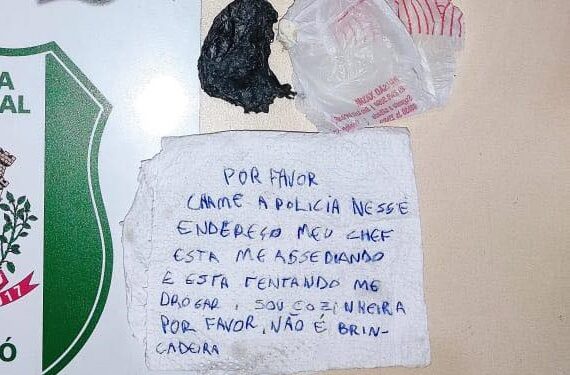 POR FAVOR
CHAME A POLICIA NESSE
ENDEREÇO MEU CHEF
ESTA ME ASSEDIANDO
E ESTA TENTANDO ME
DROGAR, SOU COZINHEIRA
POR FAVOR, NÃO É BRIN-
CADEIRA